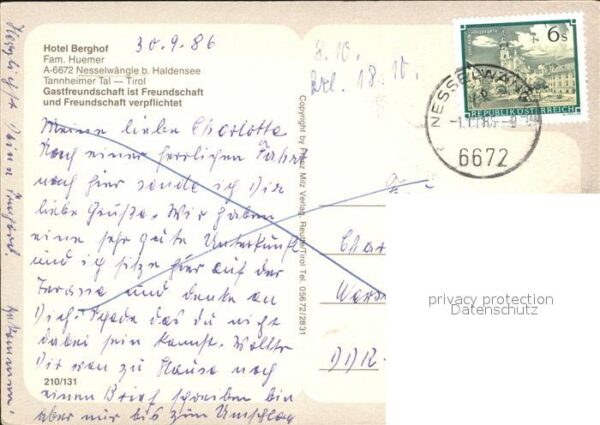 Hotel Berghof
Fam. Huemer
A-6672 Nesselwängle b. Haldensee
Tannheimer Tal — Tirol
Gastfreundschaft ist Freundschaft
und Freundschaft verpflichtet
30.9.86
Meine lieben Charlotte
Nach einer herrlichen Fahrt
nach hier sende ich Dir
liebe Grüße. Wir haben
eine sehr gute Unterkunft
und ich sitze hier auf der
Terasse und denke an
Dich. Schade das du nicht
dabei sein kannst. Wollte
Dir von zu Hause noch
einen Brief schreiben bin
aber nur bis zum Umschlag
gekommen.
Herzlichst Deine
210/131
Copyright by Franz Milz Verlag, Reutte/Tirol Tel. 05672/2831
8.10.
18.10.
6s
REPUBLIK ÖSTERREICH
NESSELWÄNG
6672
Char
DDR-
privacy protection
Datenschutz